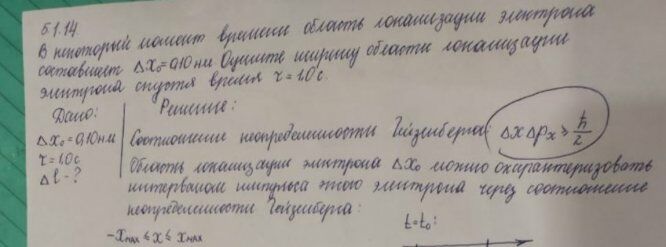 б1.14.
В некоторый момент времени область локализации электрона
составляет Δx₀=0,10 нм Оцените ширину области локализации
электрона спустя время τ=1,0с.
Дано:
Решение:
Δx₀=0,10нм
τ=1,0с
Δl-?
Соотношение неопределенности Гейзенберга: ΔxΔpₓ ≥ ħ/2
Область локализации электрона Δx₀ можно охарактеризовать
интервалом импульса этого электрона через соотношение
неопределенности Гейзенберга:
t=t₀:
-xₘₐₓ ≤ x ≤ xₘₐₓ